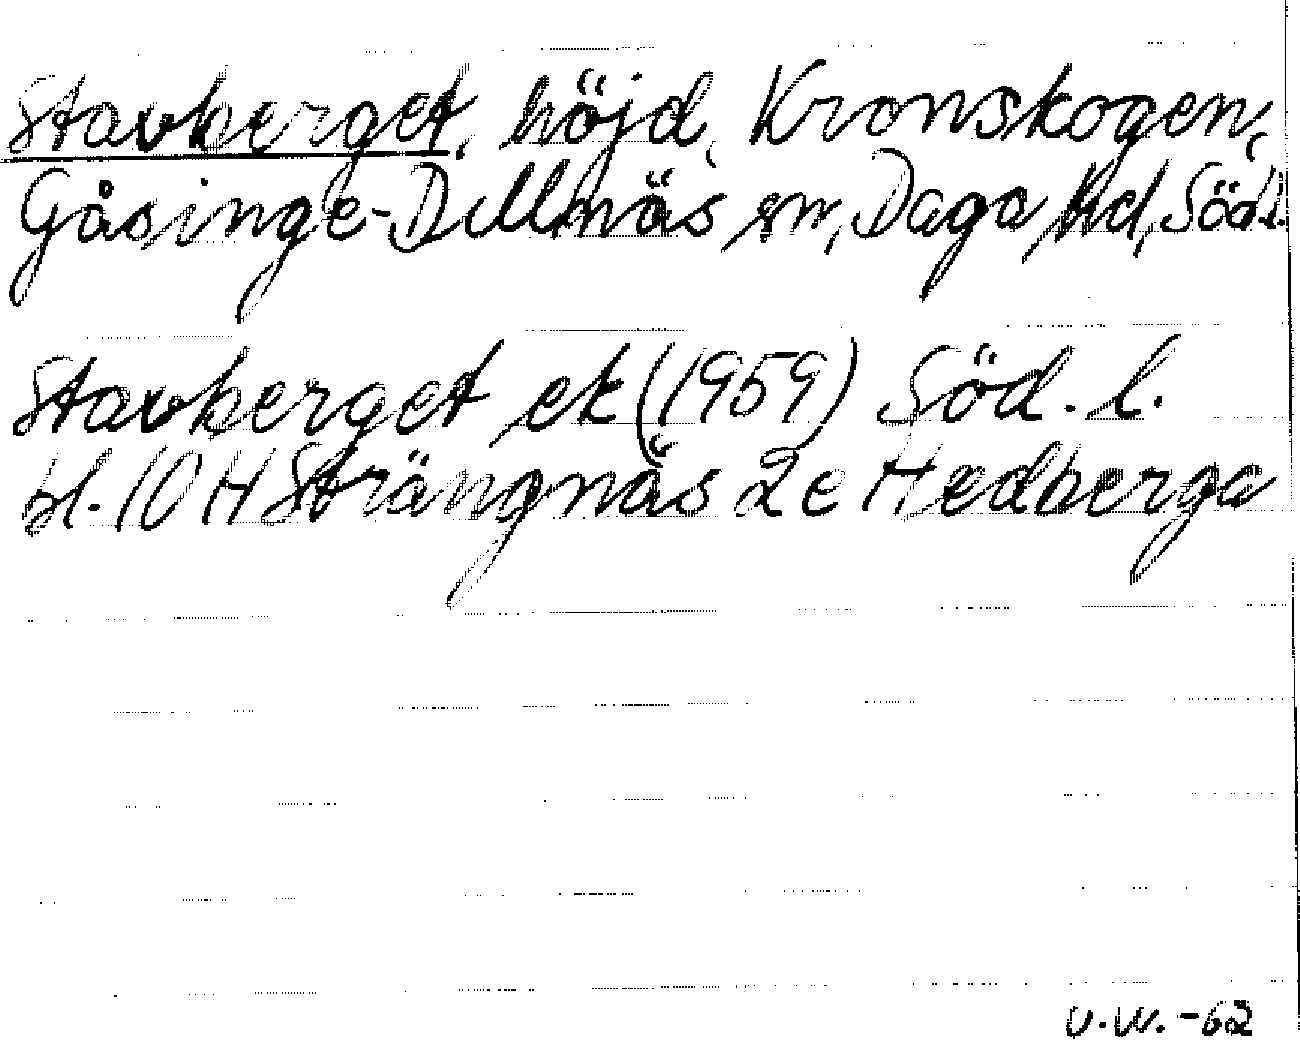 Stavberget, höjd, Kronskogen,
Gåsinge-Dillnäs sn, Daga hd, Södl.
Stavberget ek (1959) Söd. l.
bl. 10 H Strängnäs 2e Hedberga
U.W. -62